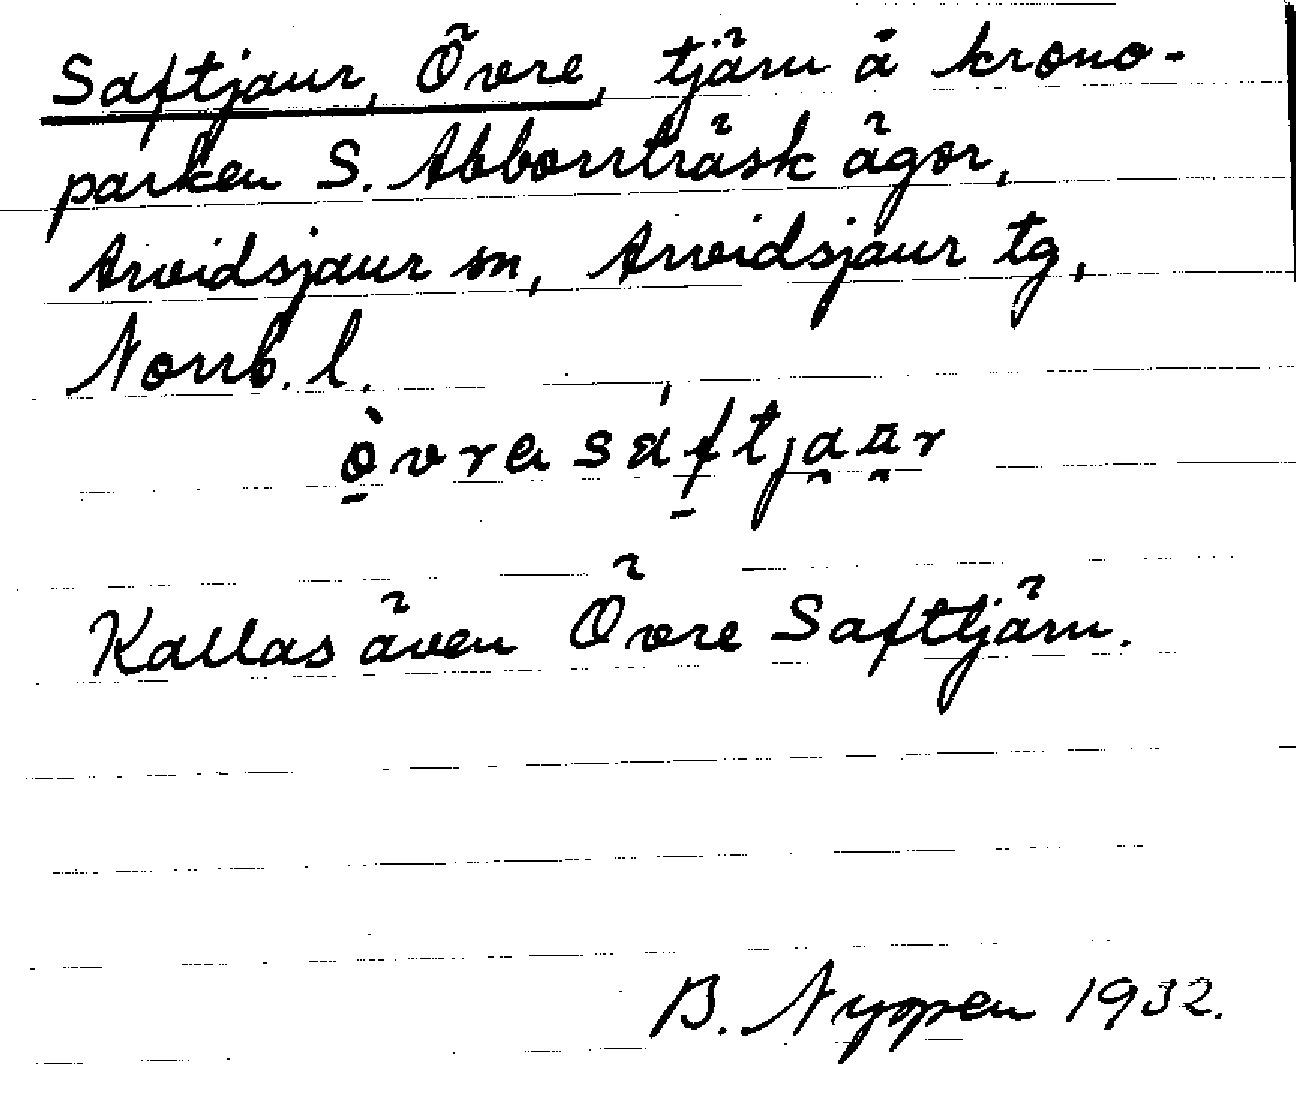 Saftjaur, Övre, tjärn å krono-
parken S. Abborrträsk ägor,
Arvidsjaur sn, Arvidsjaur tg,
Norrb. l.
Kallas även Övre Saftjärn.
B. Nyppen 1932.